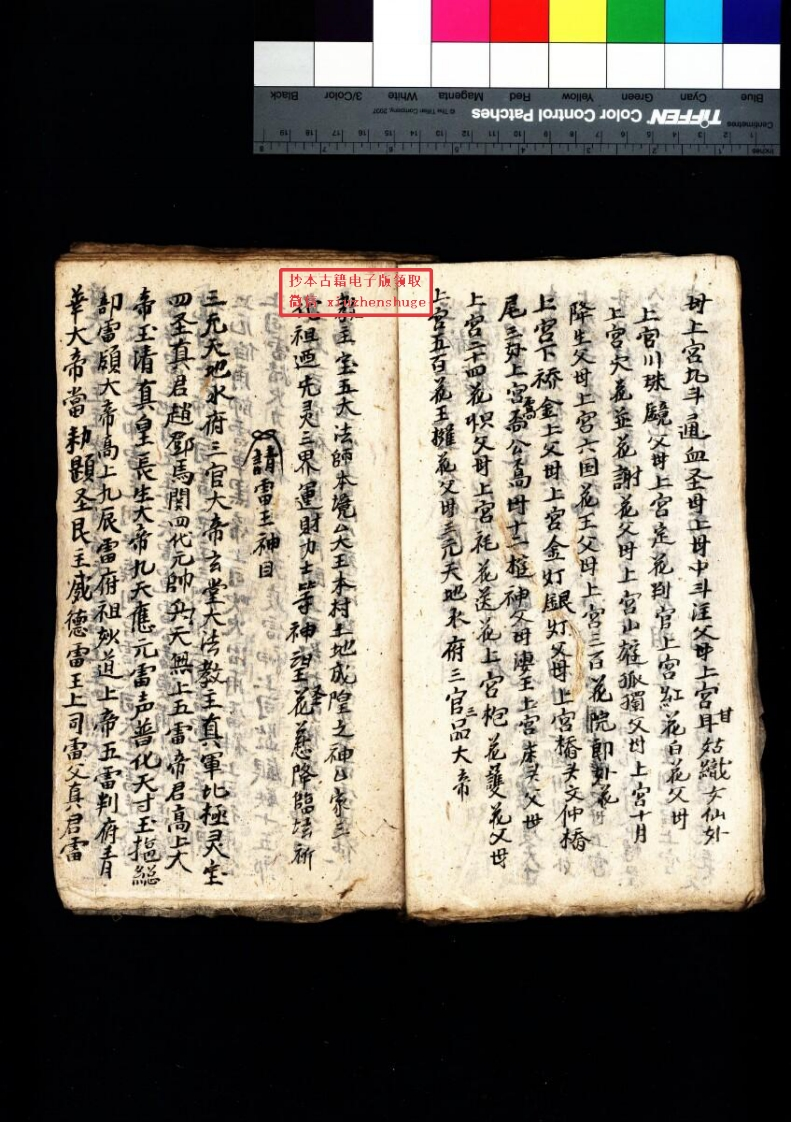 Blue
Cyan
Green
Yellow
Red
Magenta
White
3/Color
Black
© The Tiffen Company, 2007
TIFFEN Color Control Patches
Centimetres
Inches
抄本古籍电子版领取
微信 xiuzhenshuge
毌上宫九斗通血圣毌上毌中斗注父毌上宫耳甘姑織女仙外
上宫川珠鏡父毌上宫定花判官上宫紅花白花父毌
上宫六花並花謝花父毌上宫山雄孤獨父毌上宫十月
降生父毌上宫六国花王父毌上宫三百花院郎外花
上宫下桥金上父毌上宫金灯銀灯父毌上宫橋头文仲橋
尾三毌上宫吾公吾毌十二桩神父毌溇王上宫床头父毌
上宫二十四花父毌上宫花送花上宫枹花護花父毌
上宫五百花王擁花父毌三元天地水府三官三品大帝
教主宝五大法師本境大王本村土地成隍之神家三
祖迺先灵三界運財力士等神望花慈降臨坛祈
請雷王神目
三元天地水府三官大帝玄堂大法教主真軍北極灵宝
四圣真君趙鄧馬関四代元帥天無上五雷帝君高上大
帝玉清真皇長生大帝九天應元雷声普化天寸王摳総
部雷大帝高上九辰雷府祖妙道上帝五雷判府青
華大帝當勅題圣民主威德雷王上司雷父真君雷